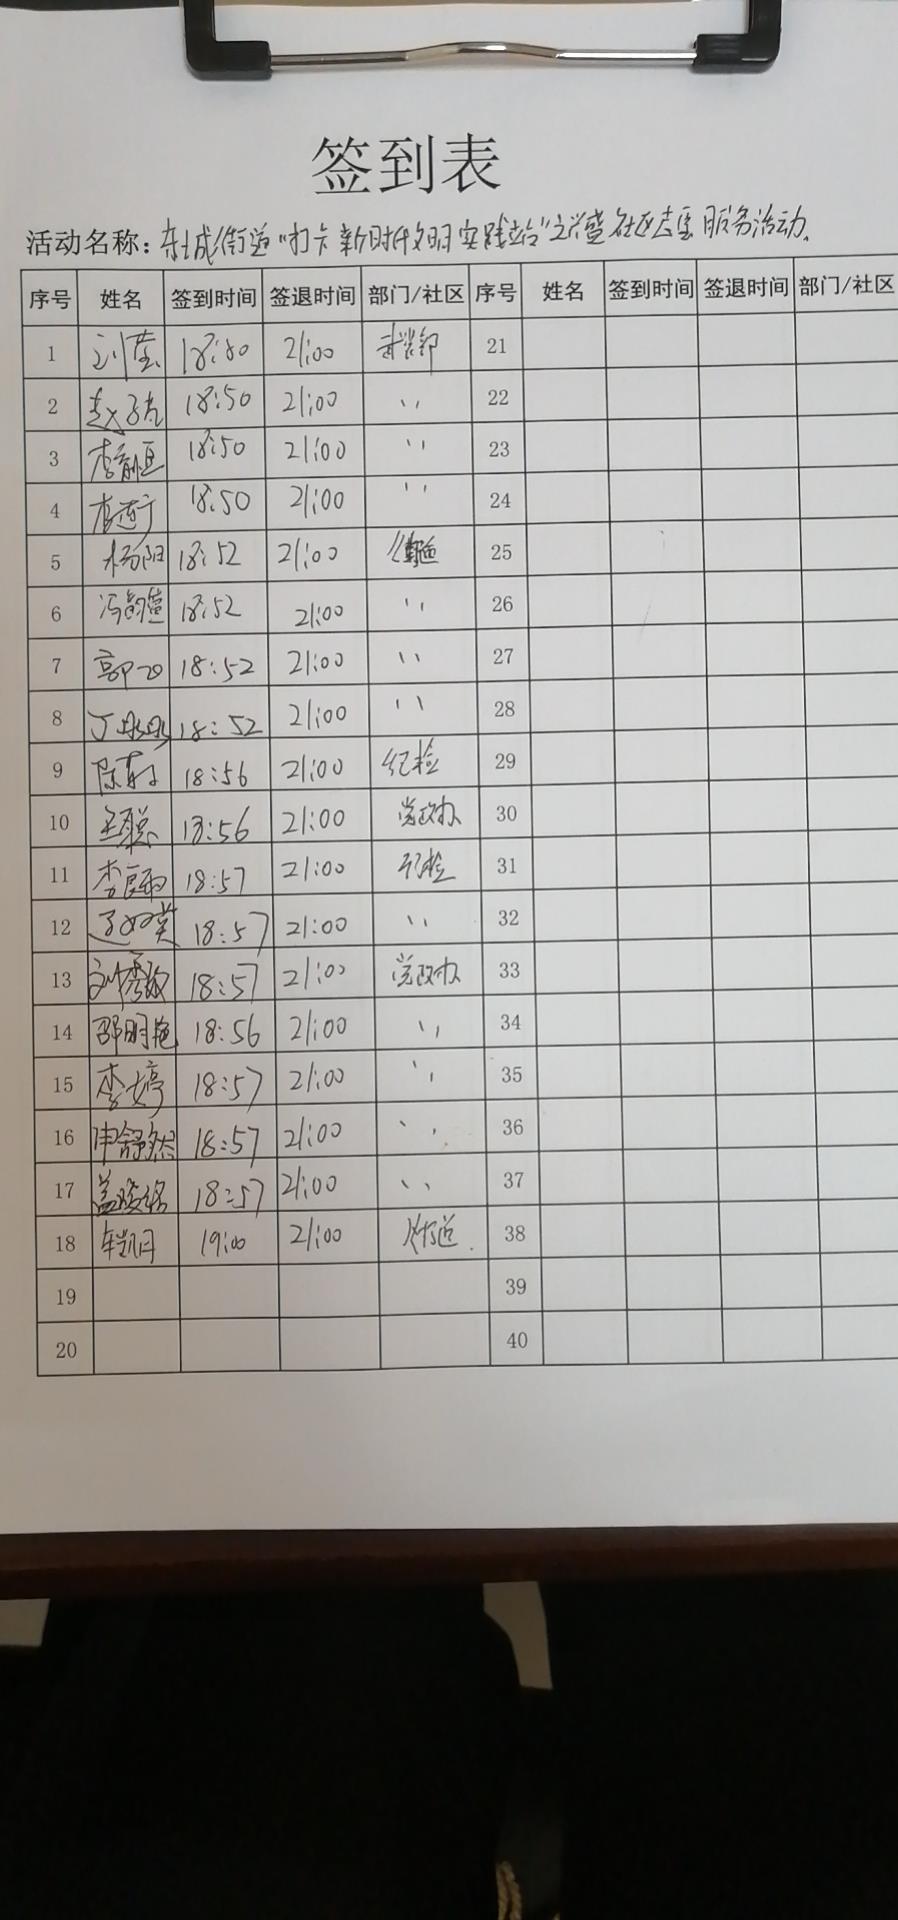 签到表
活动名称：东城街道"打卡新时代文明实践站"志愿服务活动.
序号 姓名 签到时间 签退时间 部门/社区 序号 姓名 签到时间 签退时间 部门/社区
1 刘莹 18:50 21:00 武装部 21
2 赵 18:50 21:00 〃 22
3 李 18:50 21:00 〃 23
4 18:50 21:00 〃 24
5 杨阳 18:52 21:00 街道 25
6 冯 18:52 21:00 〃 26
7 郭 18:52 21:00 〃 27
8 丁 18:52 21:00 〃 28
9 陈 18:56 21:00 纪检 29
10 王聪 18:56 21:00 党政办 30
11 李 18:57 21:00 纪检 31
12 18:57 21:00 〃 32
13 刘秀敏 18:57 21:00 党政办 33
14 邵明艳 18:56 21:00 〃 34
15 李婷 18:57 21:00 〃 35
16 申舒然 18:57 21:00 〃 36
17 18:57 21:00 〃 37
18 车凯月 19:00 21:00 街道 38
19 39
20 40